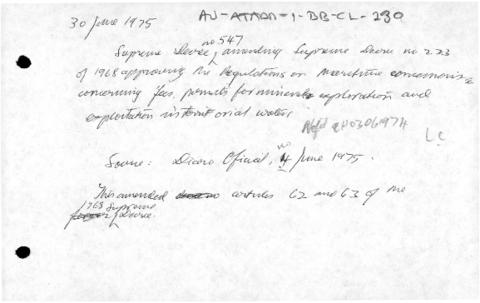 30 June 1975
AU-ATADD-1-BB-CL-230
Supreme Decree no 547, amending Supreme Decree no 223
of 1968 approving the Regulations on Maritime concessions
concerning fees, permits for mineral exploration and
exploitation in territorial waters
L.C
Source: Diario Oficial, no 4 June 1975.
This amended articles 62 and 63 of the
1968 Supreme
Decree.